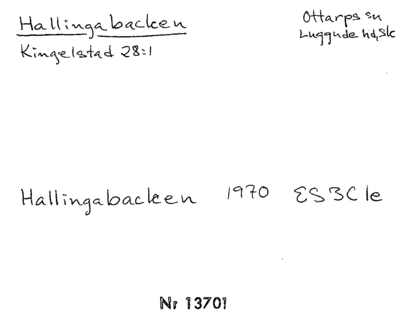 Hallingabacken
Kingelstad 28:1
Ottarps sn
Luggude hd, Sk
Hallingabacken 1970 ES3C1e
Nr 13701